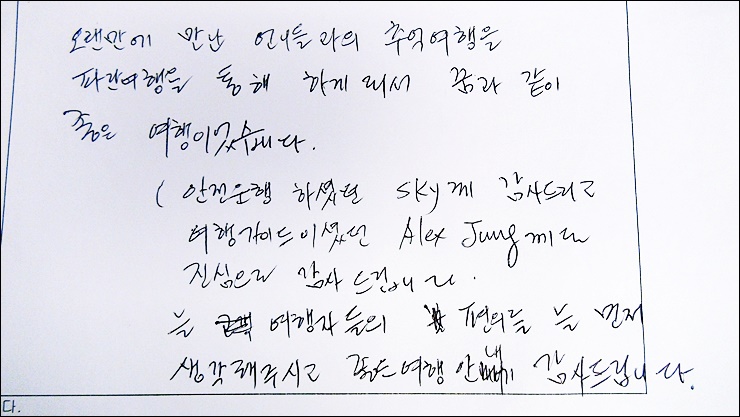 오랜만에 만난 언니들과의 추억여행을
파란여행을 통해 하게 돼서 꿈과 같이
좋은 여행이었습니다.
( 안전운행 하셨던 sky께 감사드리고
여행가이드이셨던 Alex Jung께도
진심으로 감사 드립니다.
늘 여행자들의 편의를 늘 먼저
생각해주시고 좋은여행 안내 감사드립니다.
다.